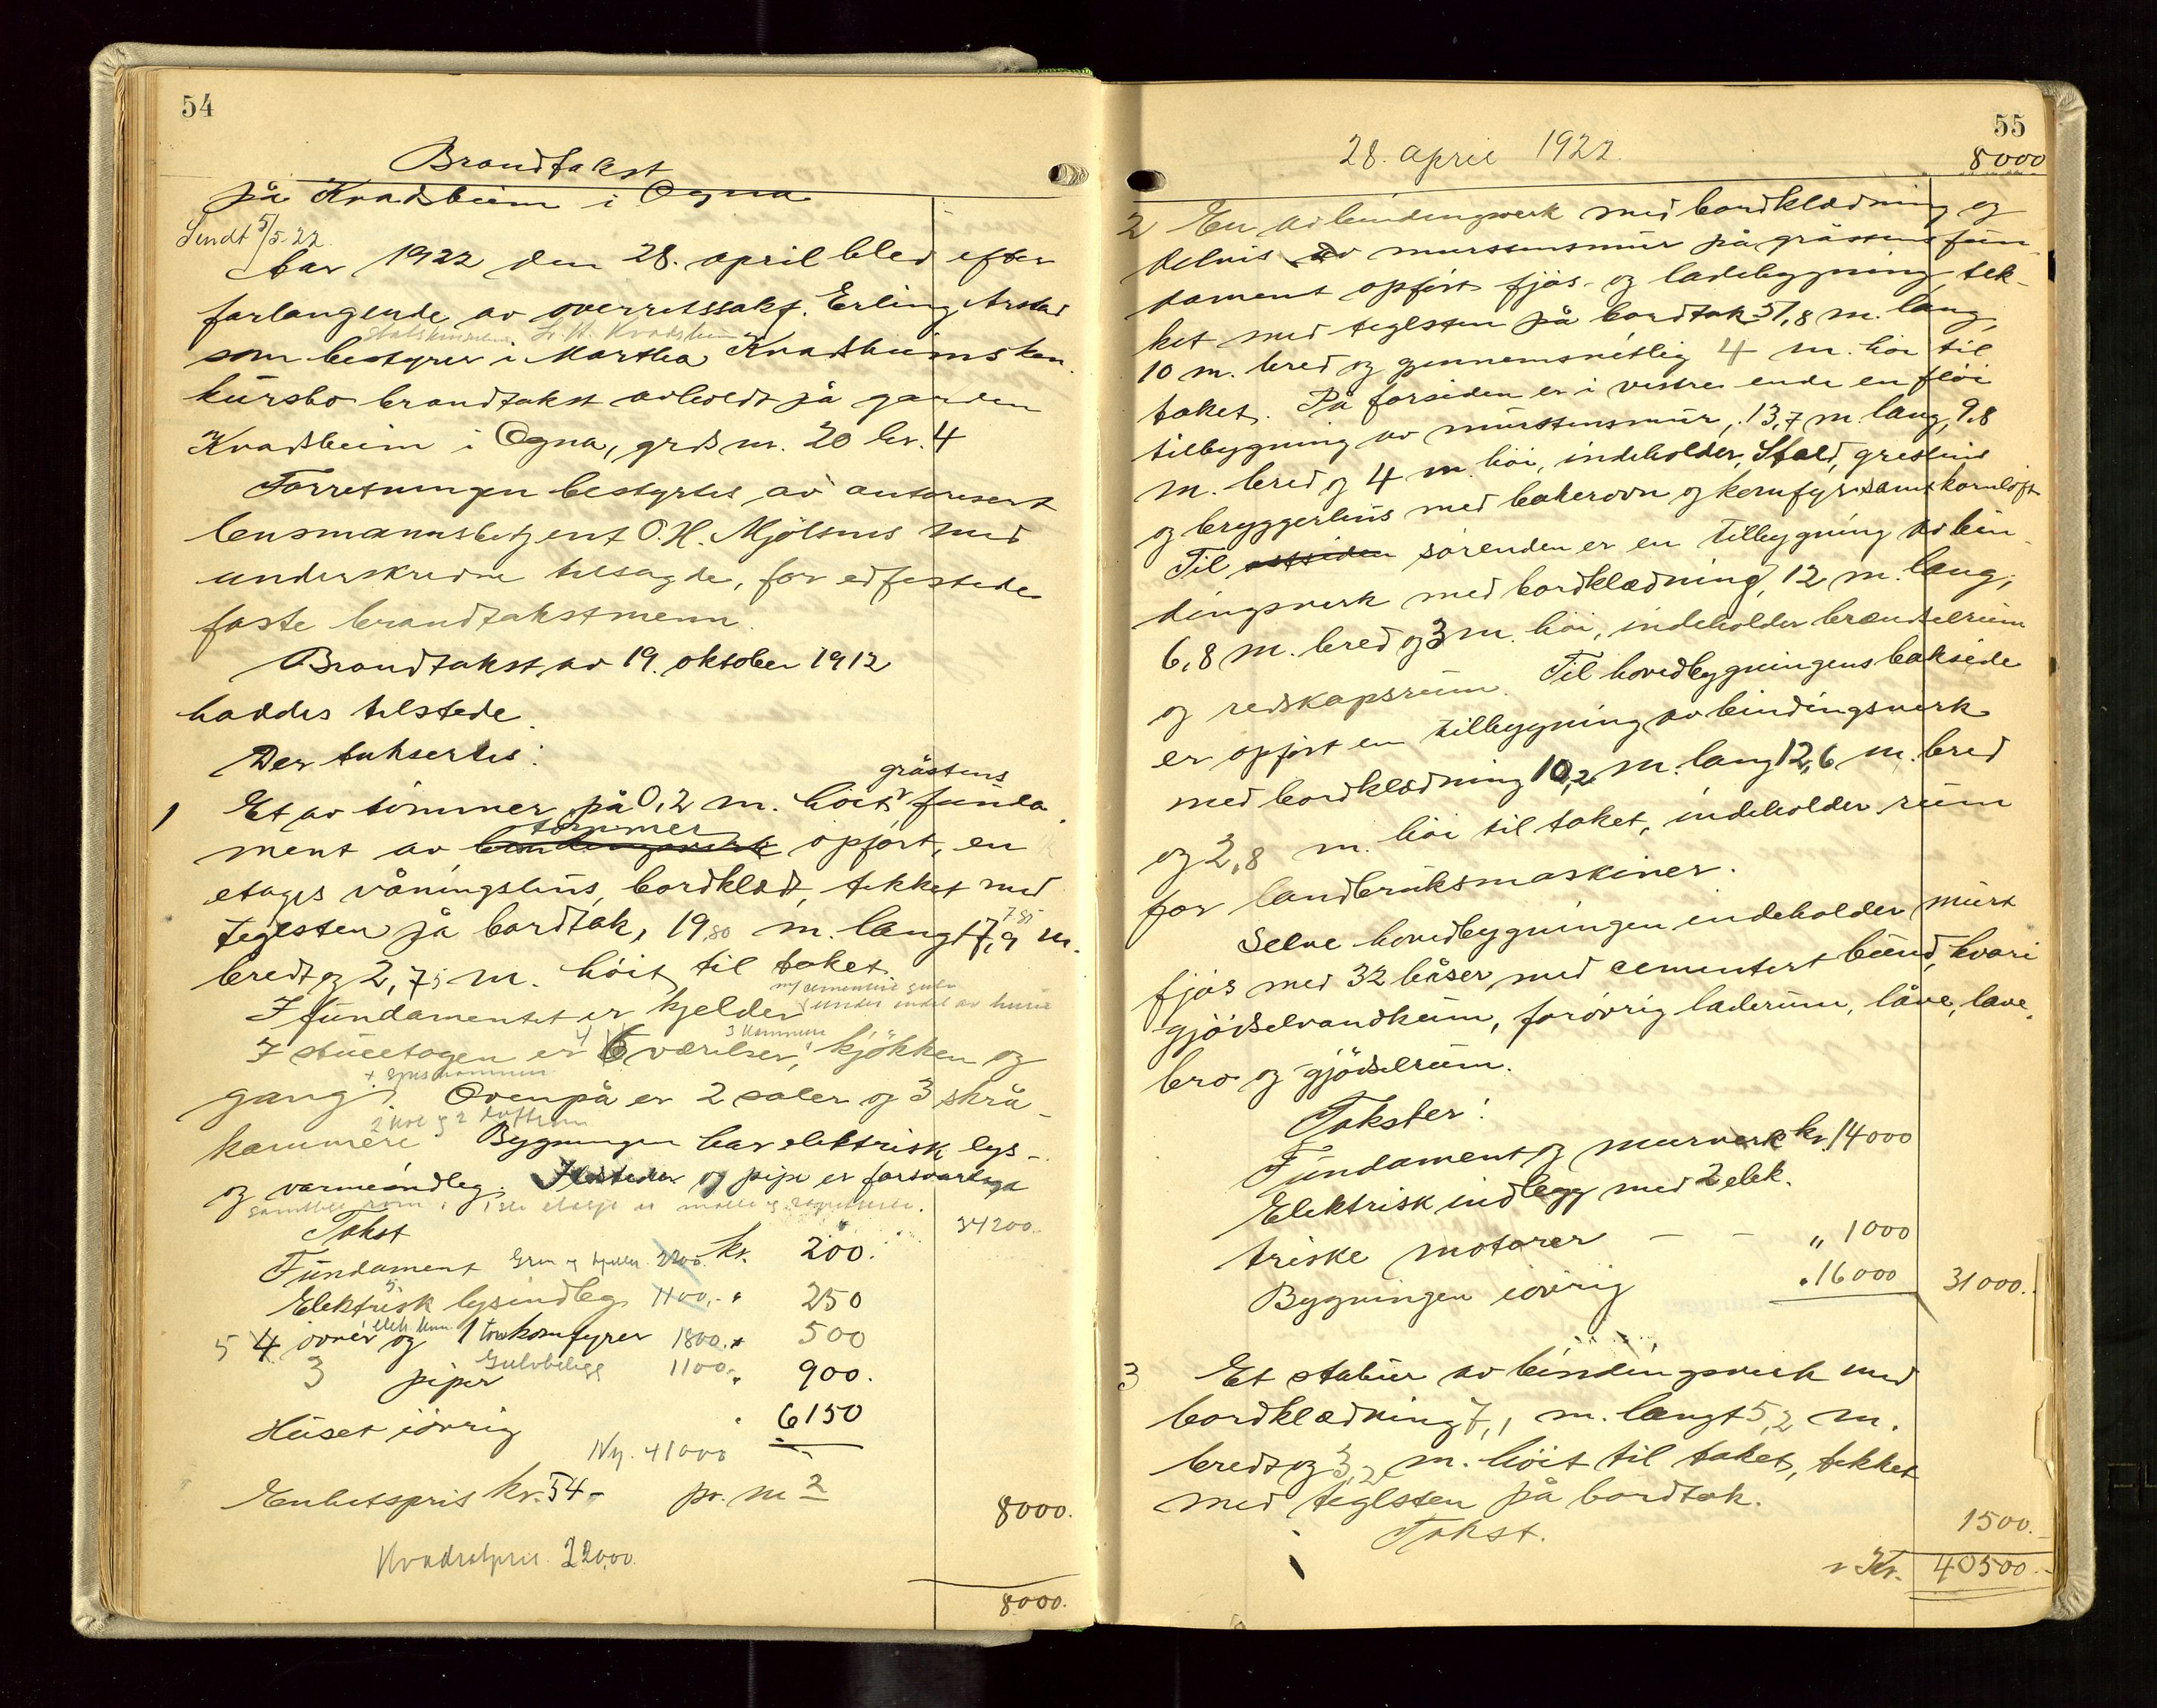 54
Brandtakst
på Kvadsheim i Ogna
Sendt 5/5-22.
Aar 1922 den 28. april blev efter
forlangende av overretssakf. Erling Arstad
som bestyrer i Martha Kvadsheims kon
kursbo brandtakst avholdt på garden
Kvadsheim i Ogna, grds nr. 20 br. 4
Forretningen bestyrtes av autorisert
lensmannsbetjent O. H. Mjölsnes med
underskrevne tilsagde, for edfestede
faste brandtakstmenn.
Brandtakst av 19. oktober 1912
haddes tilstede.
Der taksertes:
gråstens
1 Et av tömmer på 0,2 m. höit funda
tömmer
ment av bindingsverk opfört, en
etages våningshus, bordklædt, tekket med
7.85
teglsten på bordtak, 19,80 m. langt 7,9 m.
bredt og 2,75 m. höit til taket.
I fundamentet er kjelder under endel av huset
4 3 kammere
I stueetagen er 6 værelser, kjökken og
+ spiskammer
gang. Ovenpå er 2 saler og 3 skrå-
kammere Bygningen har elektrisk lys-
og varmeindleg. Ildsteder og pipe er forsvarlige
Takst 34200.
Fundament 2200. kr. 200.
Elektrisk lysindleg 1100,- " 250
5 4 ovner og 1 komfyrer 1800. " 500
3 piper Gulvbelegg 1100. " 900.
Huset iövrig " 6150
Ny. 41000
Enhetspris kr. 54.- pr. m 2
8000.
Kvadratpris. 22000.
8000.
55
28. april 1922.
8000
2 En av bindingsverk med bordklædning og
delvis av murstensmur på gråstens fun
dament opfört fjös- og ladebygning tek-
ket med teglsten på bordtak 31,8 m. lang,
10 m. bred og gjennemsnitlig 4 m. höi til
taket. På forsiden er i vestre ende en flöi
tilbygning av murstensmur, 13,7 m. lang, 9,8
m. bred og 4 m. höi, indeholder Stald, grisehus
og bryggerhus med bakerovn og komfyr samt kornloft
Til ostsiden sörenden er en tilbygning av bin-
dingsverk med bordklædning, 12 m. lang,
6,8 m. bred og 3 m. höi, indeholder brændselrum
og redskapsrum. Til hovedbygningens bakside
er opfört en tilbygning av bindingsverk
med bordklædning 10,2 m. lang 12,6 m. bred
og 2,8 m. höi til taket, indeholder rum
for landbruksmaskiner.
Selve hovedbygningen indeholder murt
fjös med 32 båser med cementert bund, hvori
gjödselvandkum, forövrig laderum, låve, lave
bro og gjödselrum.
Takster:
Fundament og murverk kr. 14000
Elektrisk indlegg med 2 elek.
triske motorer — — " 1000
Bygningen iövrig " 16000 31000.
3 Et stabur av bindingsverk med
bordklædning 7,1 m. langt 5,2 m.
bredt og 3,2 m. höit til taket, tekket
med teglsten på bordtak.
Takst. 1500.-
Kr. 40500.-